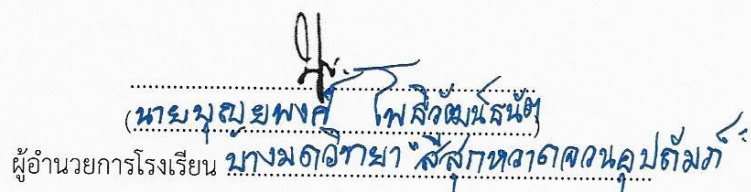 (นายบุญยพงศ์ โพธิวัฒน์ธนัต)
ผู้อำนวยการโรงเรียน บางมดวิทยา "สีสุกหวาดจวนอุปถัมภ์"